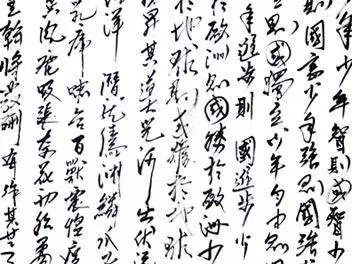 少年智則國智少
則國富少年強則國強
則國獨立少年自由則
年進步則國進步少
於歐洲則國勝於歐洲少
於地球則國雄於地球
昇其道大光河出伏流
汪洋潛龍騰淵鱗爪
乳虎嘯谷百獸震惶
風塵吸張奇花初胎矞
皇幹將發硎有作其芒